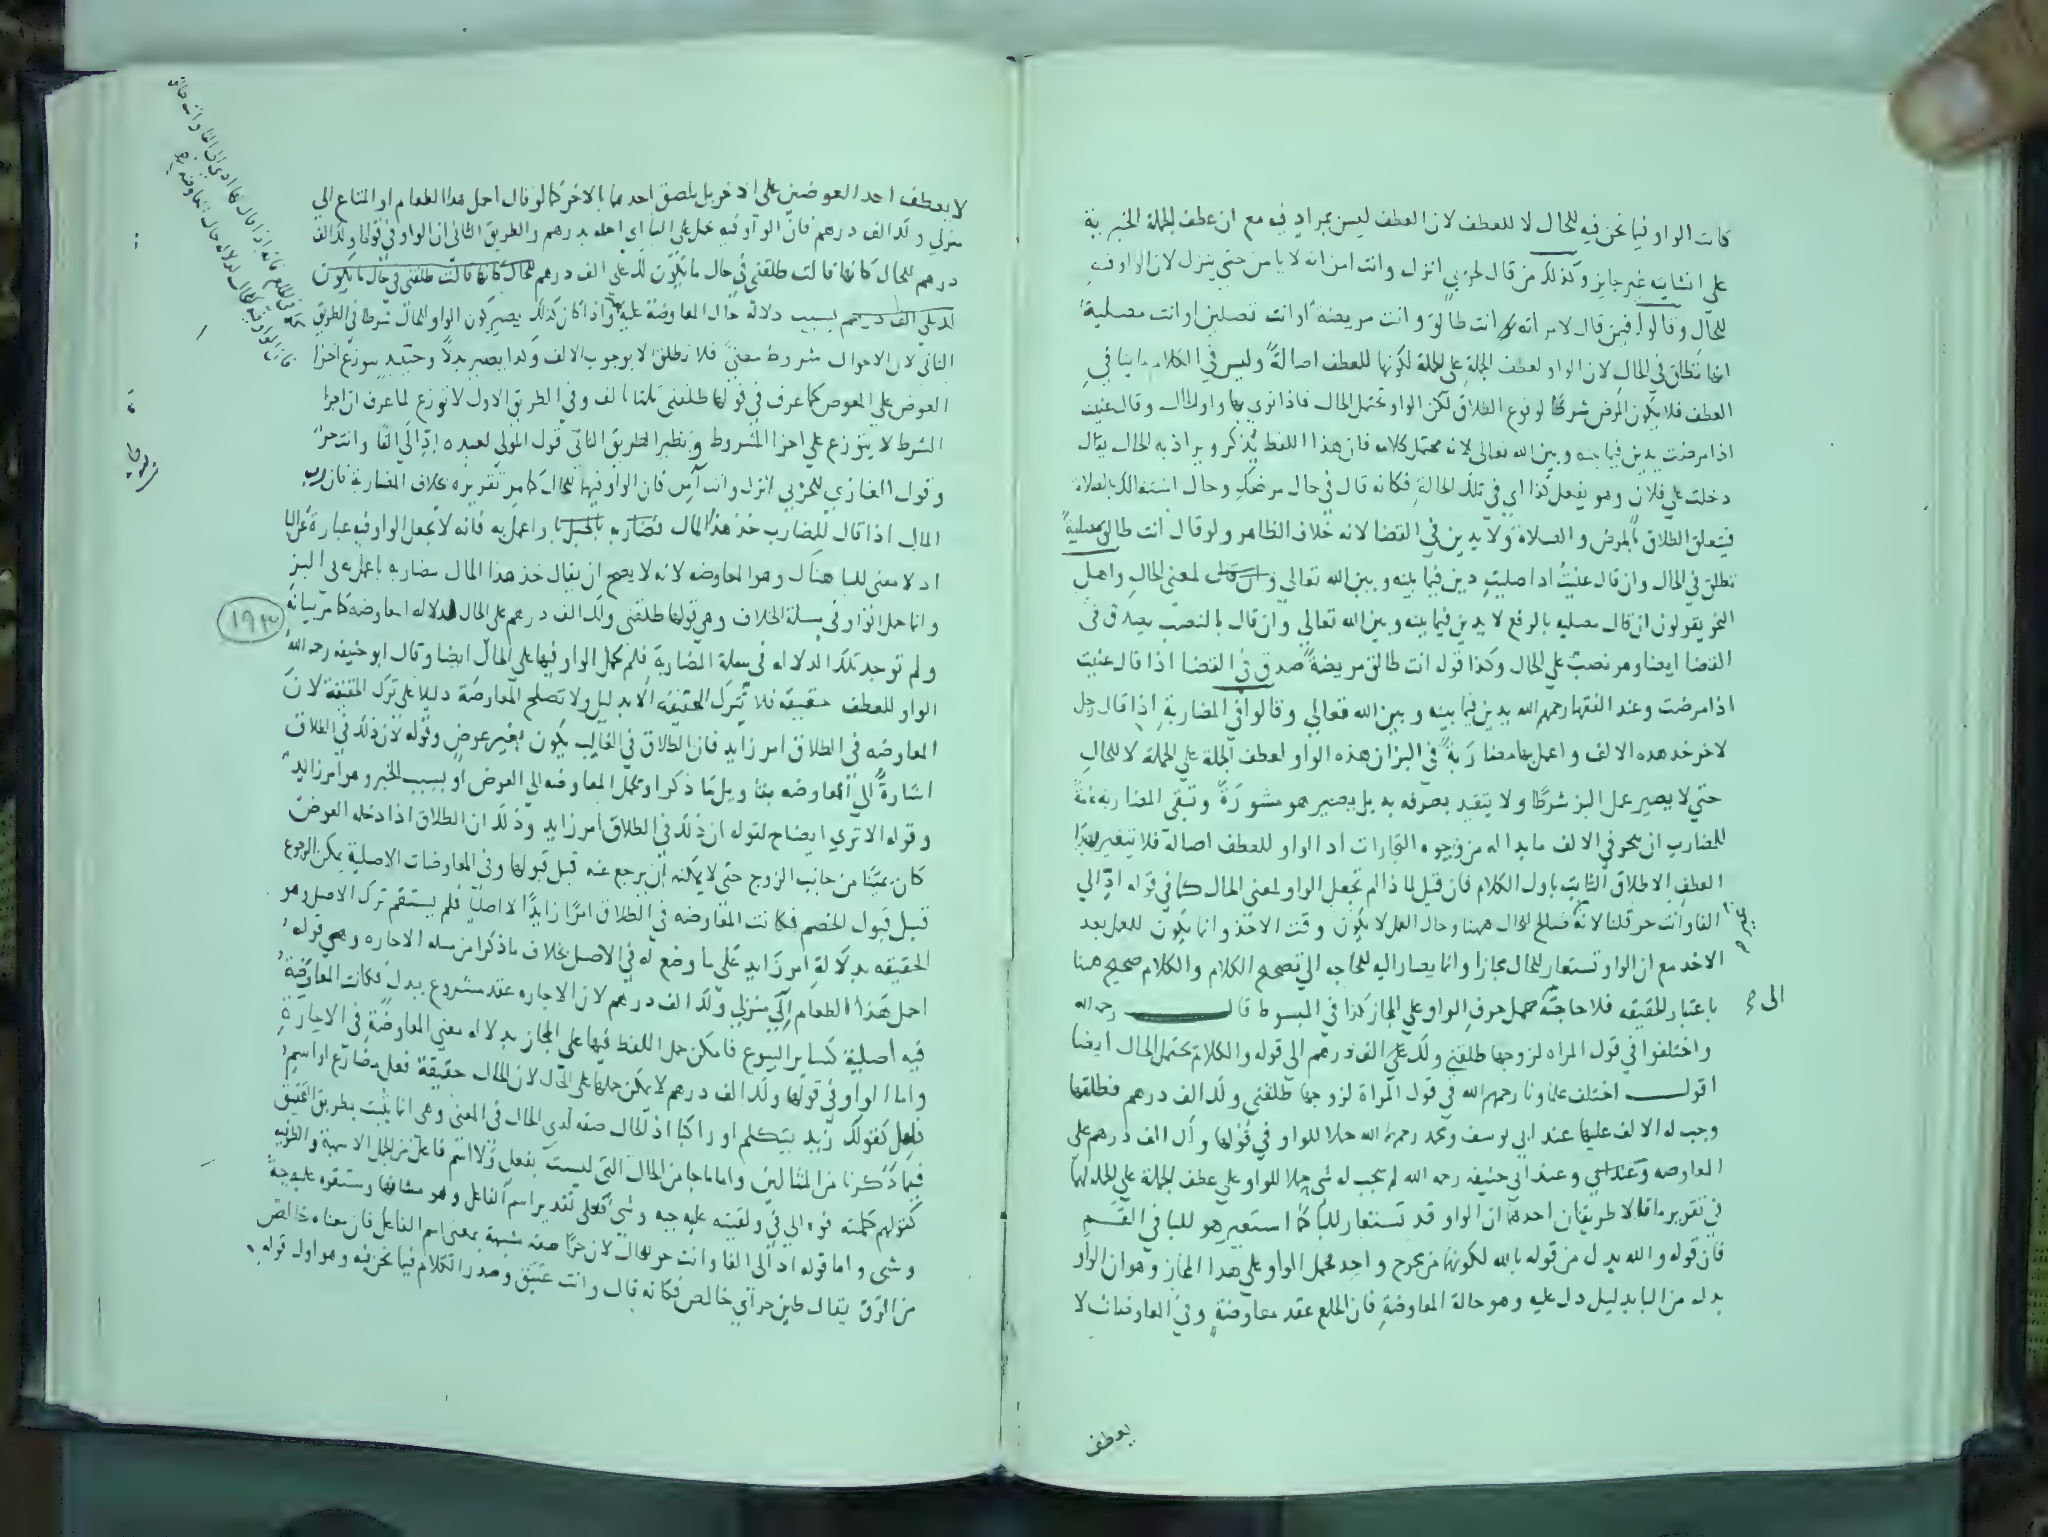 كانت الواو فيما نحن فيه للحال لا للعطف لان العطف ليس بمراد فيه مع ان عطف الجملة الخبرية
على انشايية غير جايز وكذلك من قال لحربي انزل وانت امن انه لا يامن حتي ينزل لان الواو فيه
للحال وقالوا فيمن قال لامراته انت طالق وانت مريضة او انت تصلين او انت مصلية
انها تطلق في الحال لان الواو لعطف الجملة على الجملة لكونها للعطف اصالة وليس في الكلام ما ينافي
العطف فلا يكون المرض شرطا لوقوع الطلاق لكن الواو تحتمل الحال فاذا نوي بها واو الحال وقال عنيت
اذا مرضت يدين فيما بينه وبين الله تعالى لانه محتمل كلامه فان هذا اللفظ يذكر ويراد به الحال يقال
دخلت علي فلان وهو يفعل كذا اي في تلك الحالة فكانه قال في حال مرضك وحال اشتغالك بالصلاة
فيتعلق الطلاق بالمرض والصلاة ولا يدين في القضا لانه خلاف الظاهر ولو قال انت طالق مصلية
تطلق في الحال وان قال عنيت اذا صليت دين فيما بينه وبين الله تعالي لمعنى الحال واهل
النحو يقولون ان قال مصليه بالرفع لا يدين فيما بينه وبين الله تعالي وان قال بالنصب يصدق في
القضا ايضا وهو نصب على الحال وكذا قوله انت طالق مريضة صدق في القضا اذا قال عنيت
اذا مرضت وعند الفقها رحمهم الله يدين فيما بينه وبين الله تعالي وقالوا في المضاربة اذا قال رجل
لاخر خذ هذه الالف واعمل بها مضاربة في البز ان هذه الواو لعطف الجملة على الجملة لا للحال
حتي لا يصير عمل البز شرطا ولا يتقيد بصرفه به بل يصير هو مشورة وتبقى المضاربة عامة
للمضارب ان يتجر في الالف ما بدا له من وجوه التجارات اذ الواو للعطف اصالة فلا يتغير بهذا
العطف الاطلاق الثابت باول الكلام فان قيل لماذا لم تجعل الواو لمعنى الحال كما في قوله اد الي
الفا وانت حر قلنا لانه صالح للحال ههنا وحال العمل لا يكون وقت الاخذ وانما يكون للعمل بعد
الاخذ مع ان الواو تستعار للحال مجازا وانما يصار اليه للحاجه الى تصحيح الكلام والكلام صحيح ههنا
باعتبار الحقيقه فلا حاجة الى حمل حرف الواو علي المجاز كذا في المبسوط قال رحمه الله
واختلفوا في قول المراه لزوجها طلقني ولك علي الف درهم الى قوله والكلام يحتمل الحال ايضا
اقول اختلف علماونا رحمهم الله في قول المراة لزوجها طلقني ولك الف درهم فطلقها
وجب له الالف عليها عند ابي يوسف ومحمد رحمهما الله حملا للواو في قولها ولك الف درهم على
المعاوضه وعند ابي حنيفه رحمه الله لم يجب له شي حملا للواو علي عطف الجملة علي الجملة لهما
في تقرير ما قالا طريقان احدهما ان الواو قد تستعار للبا كما استعير هو للبا في القسم
فان قوله والله بدل من قوله بالله لكونهما من مخرج واحد فحمل الواو علي هذا المجاز وهو ان الواو
بدل من البا بدليل دل عليه وهو حالة المعاوضة فان الخلع عقد معاوضة وفي المعاوضات لا
يعطف
لا يعطف احد العوضين على الاخر بل يلصق احدهما بالاخر كما لو قال احمل هذا الطعام او المتاع الي
منزلي ولك الف درهم فان الواو فيه تحمل على البا اي احمله بدرهم والطريق الثاني ان الواو في قولها ولك الف
درهم للحال كانها قالت طلقني في حال ما يكون لك علي الف درهم
بسبب دلالة حال المعاوضة عليه واذا كان كذلك يصير كون الواو للحال شرطا في الطريق
الثاني لان الاحوال شروط معنى فلا تطلق الا بوجوب الالف وكذا يصير بدلا وحينيذ يتوزع اجزا
العوض على المعوض كما عرف في قولها طلقني ثلثا بالف وفي الطريق الاول لا توزع لما عرف ان اجزا
الشرط لا يتوزع علي اجزا المشروط ونظير الطريق الثاني قول المولي لعبده اد الي الفا وانت حر
وقول الغازي للحربي انزل وانت آمن فان الواو فيها للحال كما مر تقريره بخلاف المضاربة فان رب
المال اذا قال للمضارب خذ هذا المال مضاربه واعمل به فانه لا يجعل الواو فيه عبارة عن البا
اذ لا معنى للبا هناك وهو المعاوضه لانه لا يصح ان يقال خذ هذا المال مضاربه باعمل به في البز
وانما حمل الواو في مسلة الخلاف وهي قولها طلقني ولك الف درهم على الحال لدلاله المعاوضه كما مر بيانه
١٩٣
ولم توجد تلك الدلاله في مسلة المضاربة فلم تحمل الواو فيها على الحال ايضا وقال ابو حنيفه رحمه الله
الواو للعطف حقيقة فلا تترك الحقيقه الا بدليل ولا تصلح المعاوضة دليلا على ترك الحقيقة لان
المعاوضه في الطلاق امر زايد فان الطلاق في الغالب يكون بغير عوض وقوله لان ذلك في الطلاق
اشارة الي المعاوضه بتاويل ما ذكر او تحمل المعاوضه الي العوض او بسبب الخبر وهو امر زايد
وقوله الا تري ايضاح لقوله ان ذلك في الطلاق امر زايد وذلك ان الطلاق اذا دخله العوض
كان يمينا من جانب الزوج حتى لا يمكنه ان يرجع عنه قبل قبولها وفي المعاوضات الاصلية يمكن الرجوع
قبل قبول الخصم فكانت المعاوضه في الطلاق امرا زايدا لا اصليا فلم يستقم ترك الاصل وهو
الحقيقه بدلالة امر زايد على ما وضع له في الاصل بخلاف ما ذكرا من مسله الاجاره وهي قوله
احمل هذا الطعام الي منزلي ولك الف درهم لان الاجاره عقد مشروع ببدل فكانت المعاوضة
فيه اصلية كساير البيوع فامكن حمل اللفظ فيها على المجاز بدلاله معنى المعاوضة في الاجارة
واما الواو في قولها ولك الف درهم لا يمكن حملها على الحال لان الحال حقيقة فعل مضارع او اسم
فاعل كقولك زيد يتكلم او راكبا اذ الحال صفه لذي الحال في المعنى وهي انما يثبت بطريق التحقيق
فيما ذكرنا من المثالين واما ما جا من الحال التي ليست بفعل ولا اسم فاعل من الجمل الاسمية والظرفيه
كقولهم كلمته فوه الي في ولقيته عليه جبه وشي فعلى تقدير اسم الفاعل وهو مشافها ومستقره عليه جبة
وشي واما قوله اد الى الفا وانت حر للحال لان حرا صفة مشبهة بمعنى اسم الفاعل فان معناه خالص
من الرق يقال طين حر اي خالص فكانه قال وانت عتيق وصدر الكلام فيما نحن فيه وهو اول قوله